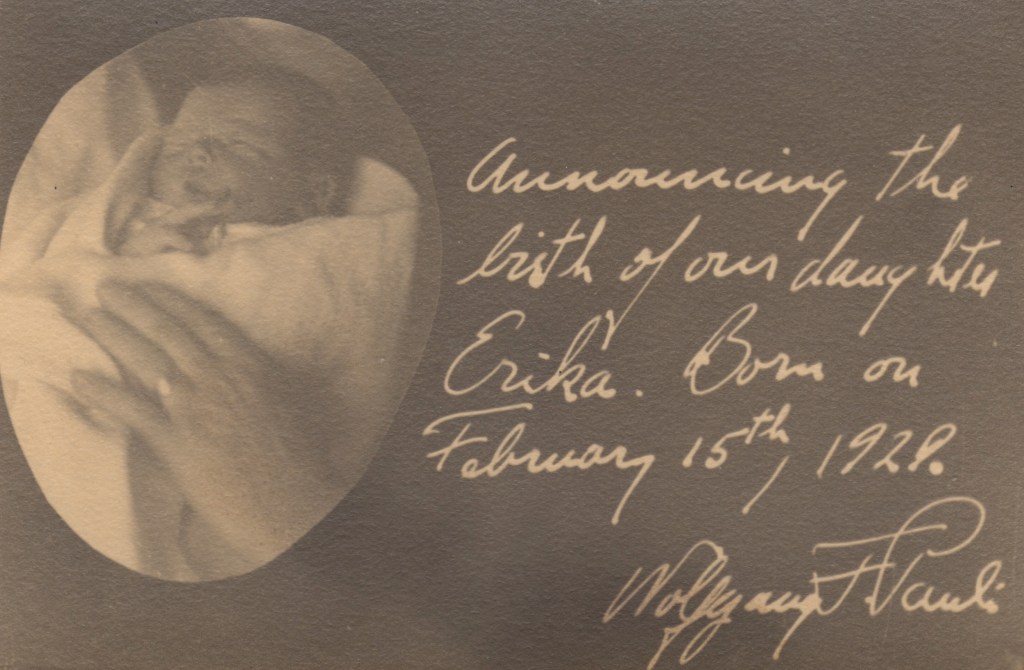 Announcing the
birth of our daughter
Erika. Born on
February 15th, 1928.
Wolfgang F. Pauli